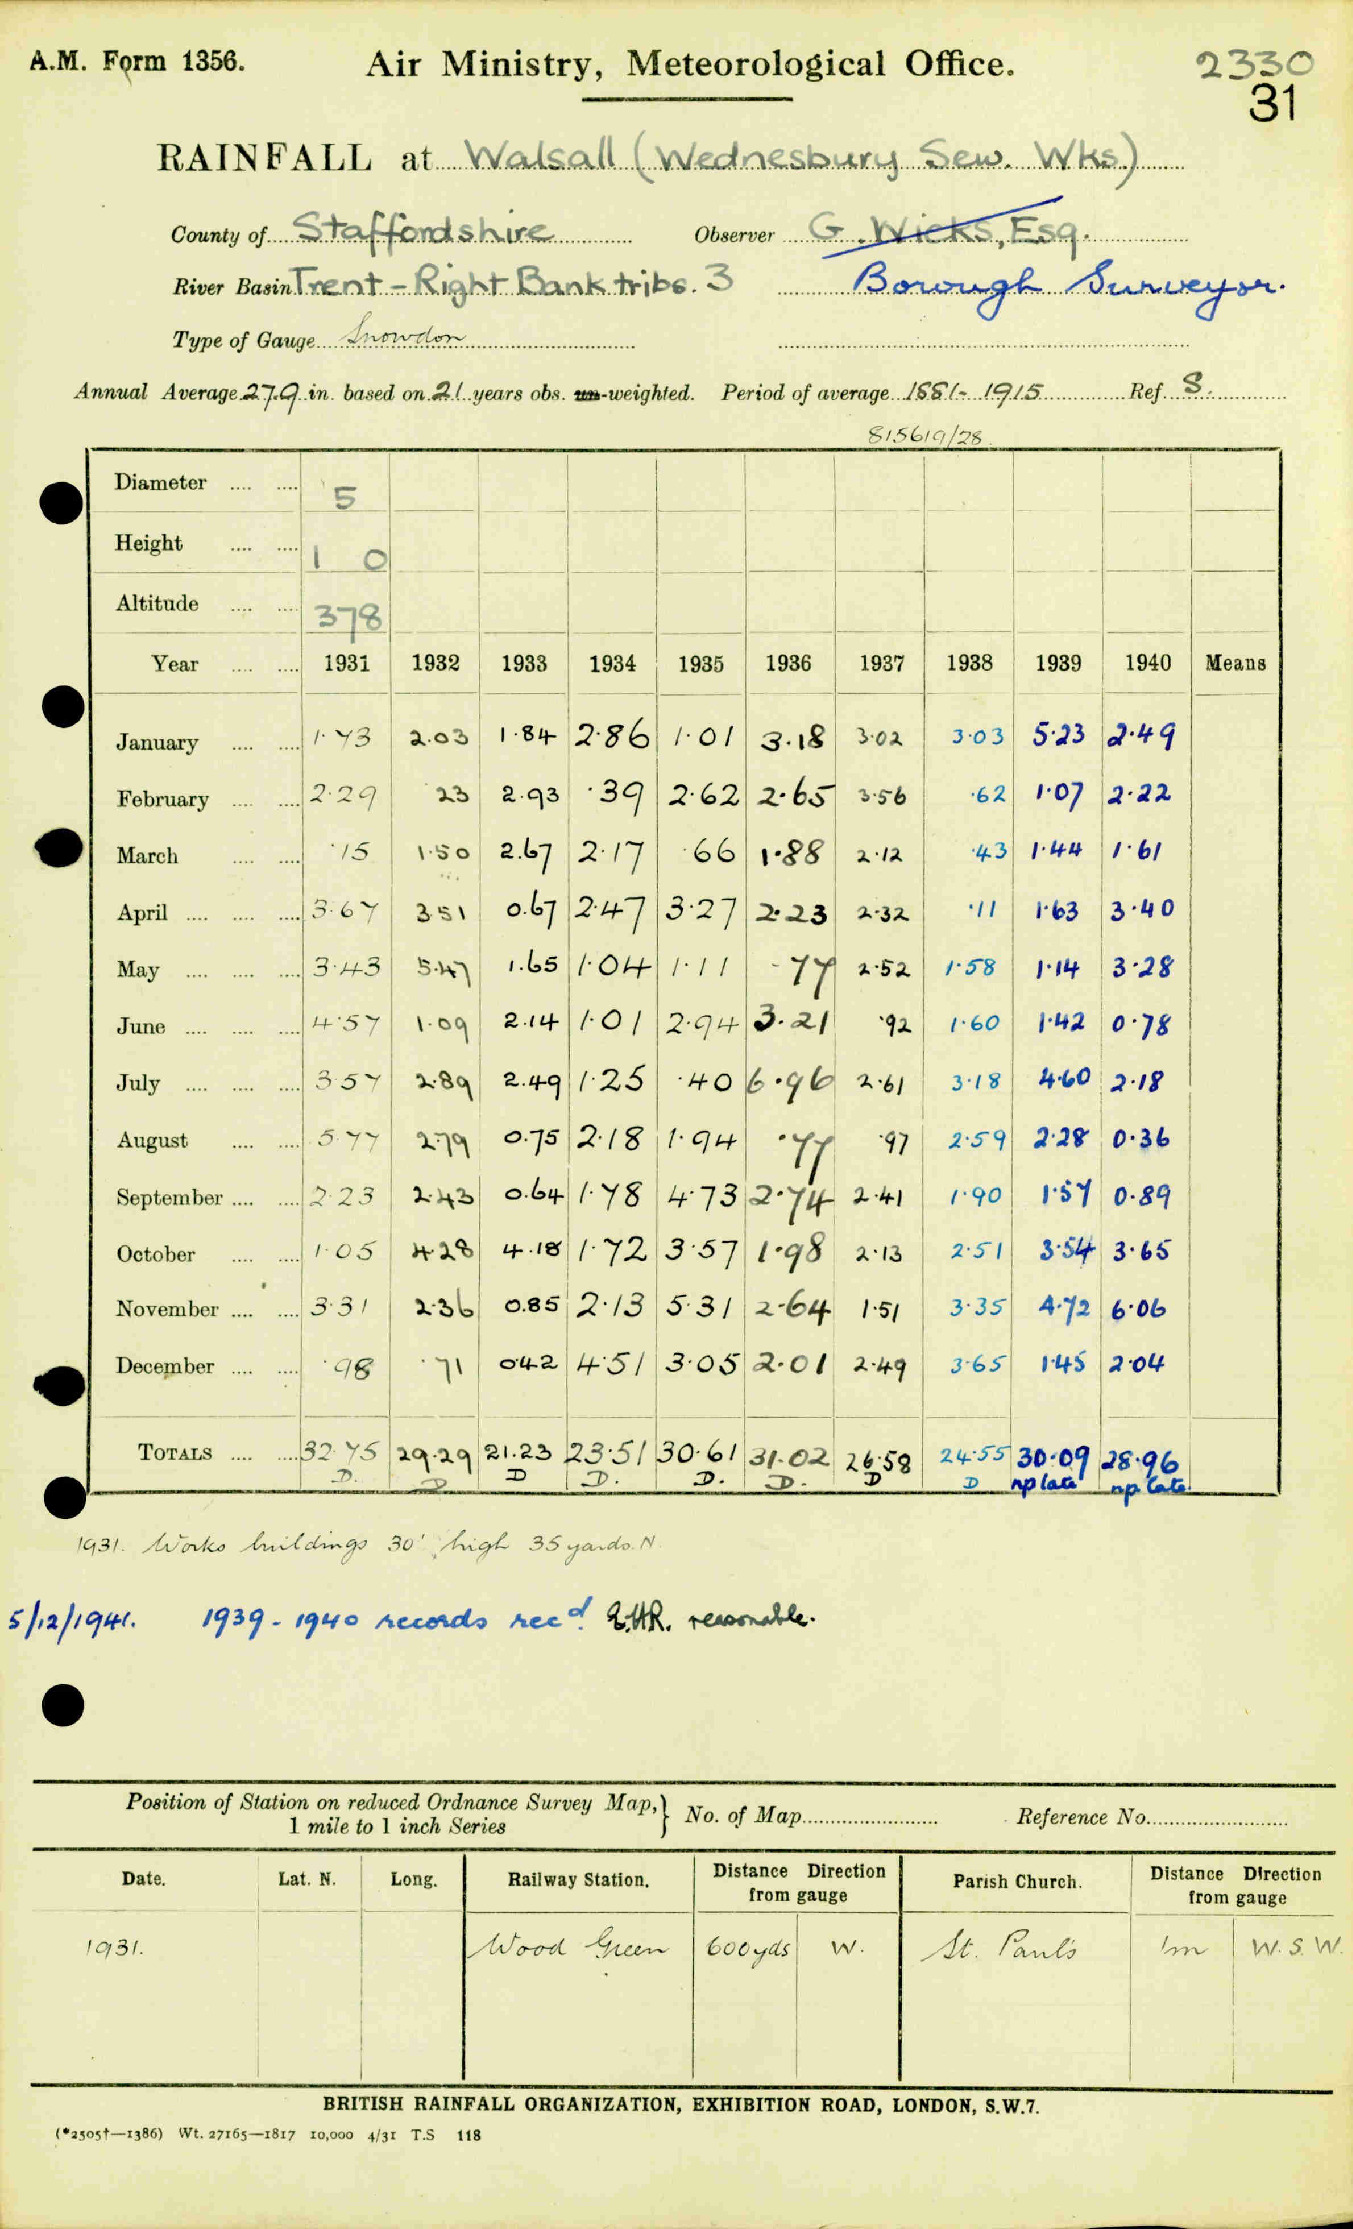 A.M. Form 1356.
Air Ministry, Meteorological Office.
2330
31
RAINFALL at Walsall (Wednesbury Sew. Wks)
County of Staffordshire Observer G. Wicks, Esq.
River Basin Trent - Right Bank tribs. 3 Borough Surveyor.
Type of Gauge Snowdon
Annual Average 27.9 in. based on 21 years obs. un-weighted. Period of average 1881-1915 Ref. S.
815619/28
Diameter 5
Height 1 0
Altitude 378
Year 1931 1932 1933 1934 1935 1936 1937 1938 1939 1940 Means
January 1.73 2.03 1.84 2.86 1.01 3.18 3.02 3.03 5.23 2.49
February 2.29 23 2.93 .39 2.62 2.65 3.56 .62 1.07 2.22
March .15 1.50 2.67 2.17 .66 1.88 2.12 .43 1.44 1.61
April 3.67 3.51 0.67 2.47 3.27 2.23 2.32 .11 1.63 3.40
May 3.43 5.47 1.65 1.04 1.11 .77 2.52 1.58 1.14 3.28
June 4.57 1.09 2.14 1.01 2.94 3.21 .92 1.60 1.42 0.78
July 3.57 2.89 2.49 1.25 .40 6.96 2.61 3.18 4.60 2.18
August 5.77 2.79 0.75 2.18 1.94 .77 .97 2.59 2.28 0.36
September 2.23 2.43 0.64 1.78 4.73 2.74 2.41 1.90 1.57 0.89
October 1.05 4.28 4.18 1.72 3.57 1.98 2.13 2.51 3.54 3.65
November 3.31 2.36 0.85 2.13 5.31 2.64 1.51 3.35 4.72 6.06
December .98 .71 0.42 4.51 3.05 2.01 2.49 3.65 1.45 2.04
TOTALS 32.75 29.29 21.23 23.51 30.61 31.02 26.58 24.55 30.09 28.96
D. D D D. D. D. D D np late np late
1931. Works buildings 30' high 35 yards. N.
5/12/1941. 1939-1940 records recd. E.H.R. reasonable.
Position of Station on reduced Ordnance Survey Map,} No. of Map Reference No.
1 mile to 1 inch Series
Date. Lat. N. Long. Railway Station. Distance Direction from gauge Parish Church. Distance Direction from gauge
1931. Wood Green 600yds W. St. Paul's 1m W.S.W.
BRITISH RAINFALL ORGANIZATION, EXHIBITION ROAD, LONDON, S.W.7.
(*2505†—1386) Wt. 27165—1817 10,000 4/31 T.S 118